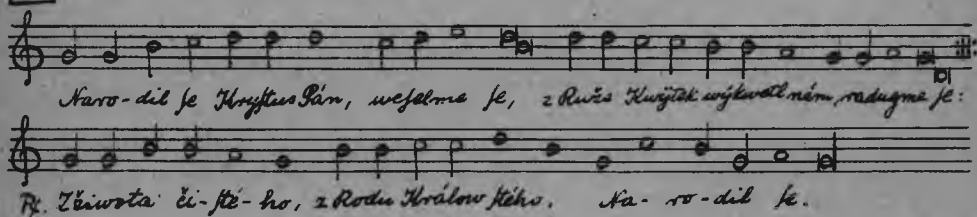 Naro-dil se Kryſtus Pán, weſelme ſe, z Ruže Kwjtek wykwetl nám, radugme ſe:
℟. Zžiwota či-ſté-ho, z Rodu Králow ſkého. Na-ro-dil ſe.